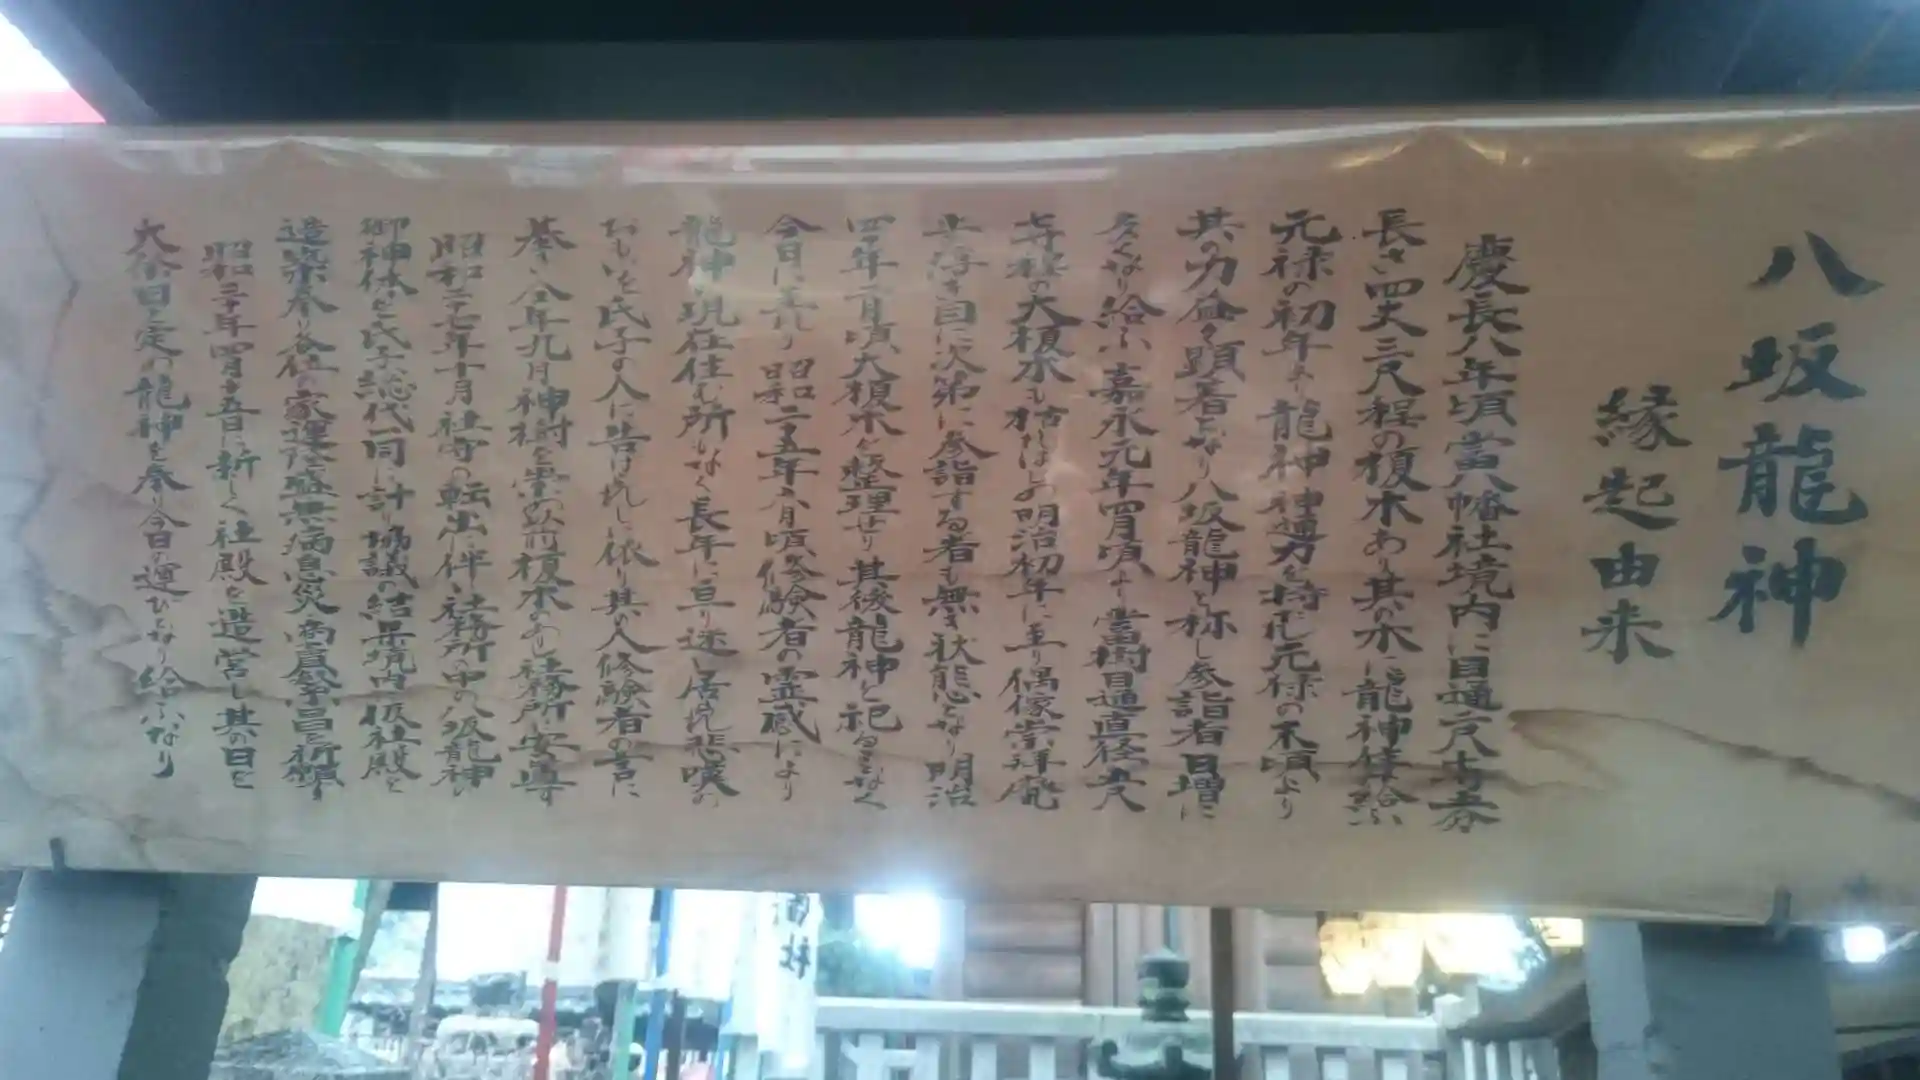 八坂龍神
縁起由来
慶長八年頃當八幡社境内に目通六尺七寸五分
長さ四丈三尺程の榎木あり其の木に龍神棲給ふ
元禄の初年より龍神神通力を持れ元禄の末頃より
其の力益々顕著となり八坂龍神と称し参詣者日増に
多くなり給ふ嘉永元年四月頃より當樹目通直径五尺
の大榎木も枯れはじめ明治初年に至り偶像崇拝廃
に次第に参詣する者も無き状態となり明治
四年一月頃大榎木を整理せり其後龍神を祀るとなく
今日に至れり昭和二十五年六月頃修験者の霊感により
龍神現在住む所もなく長年に亘り迷い居れ悲嘆の
おもいを氏子の人に告げれしに依り其の人修験者の言に
基き仝年九月神樹を榎木のあり社務所に安導す
昭和二十七年十月社寺の転出に伴き社務所の中の八坂龍神
御神体を氏子総代一同に計り協議の結果境内に仮社殿を
造築奉り各位の家運隆盛無病息災商売繁昌を祈願す
昭和三十年四月十五日に新しく社殿を造営し其の日を
大祭日と定め龍神を奉り今日の運びとなり給ふなり
社